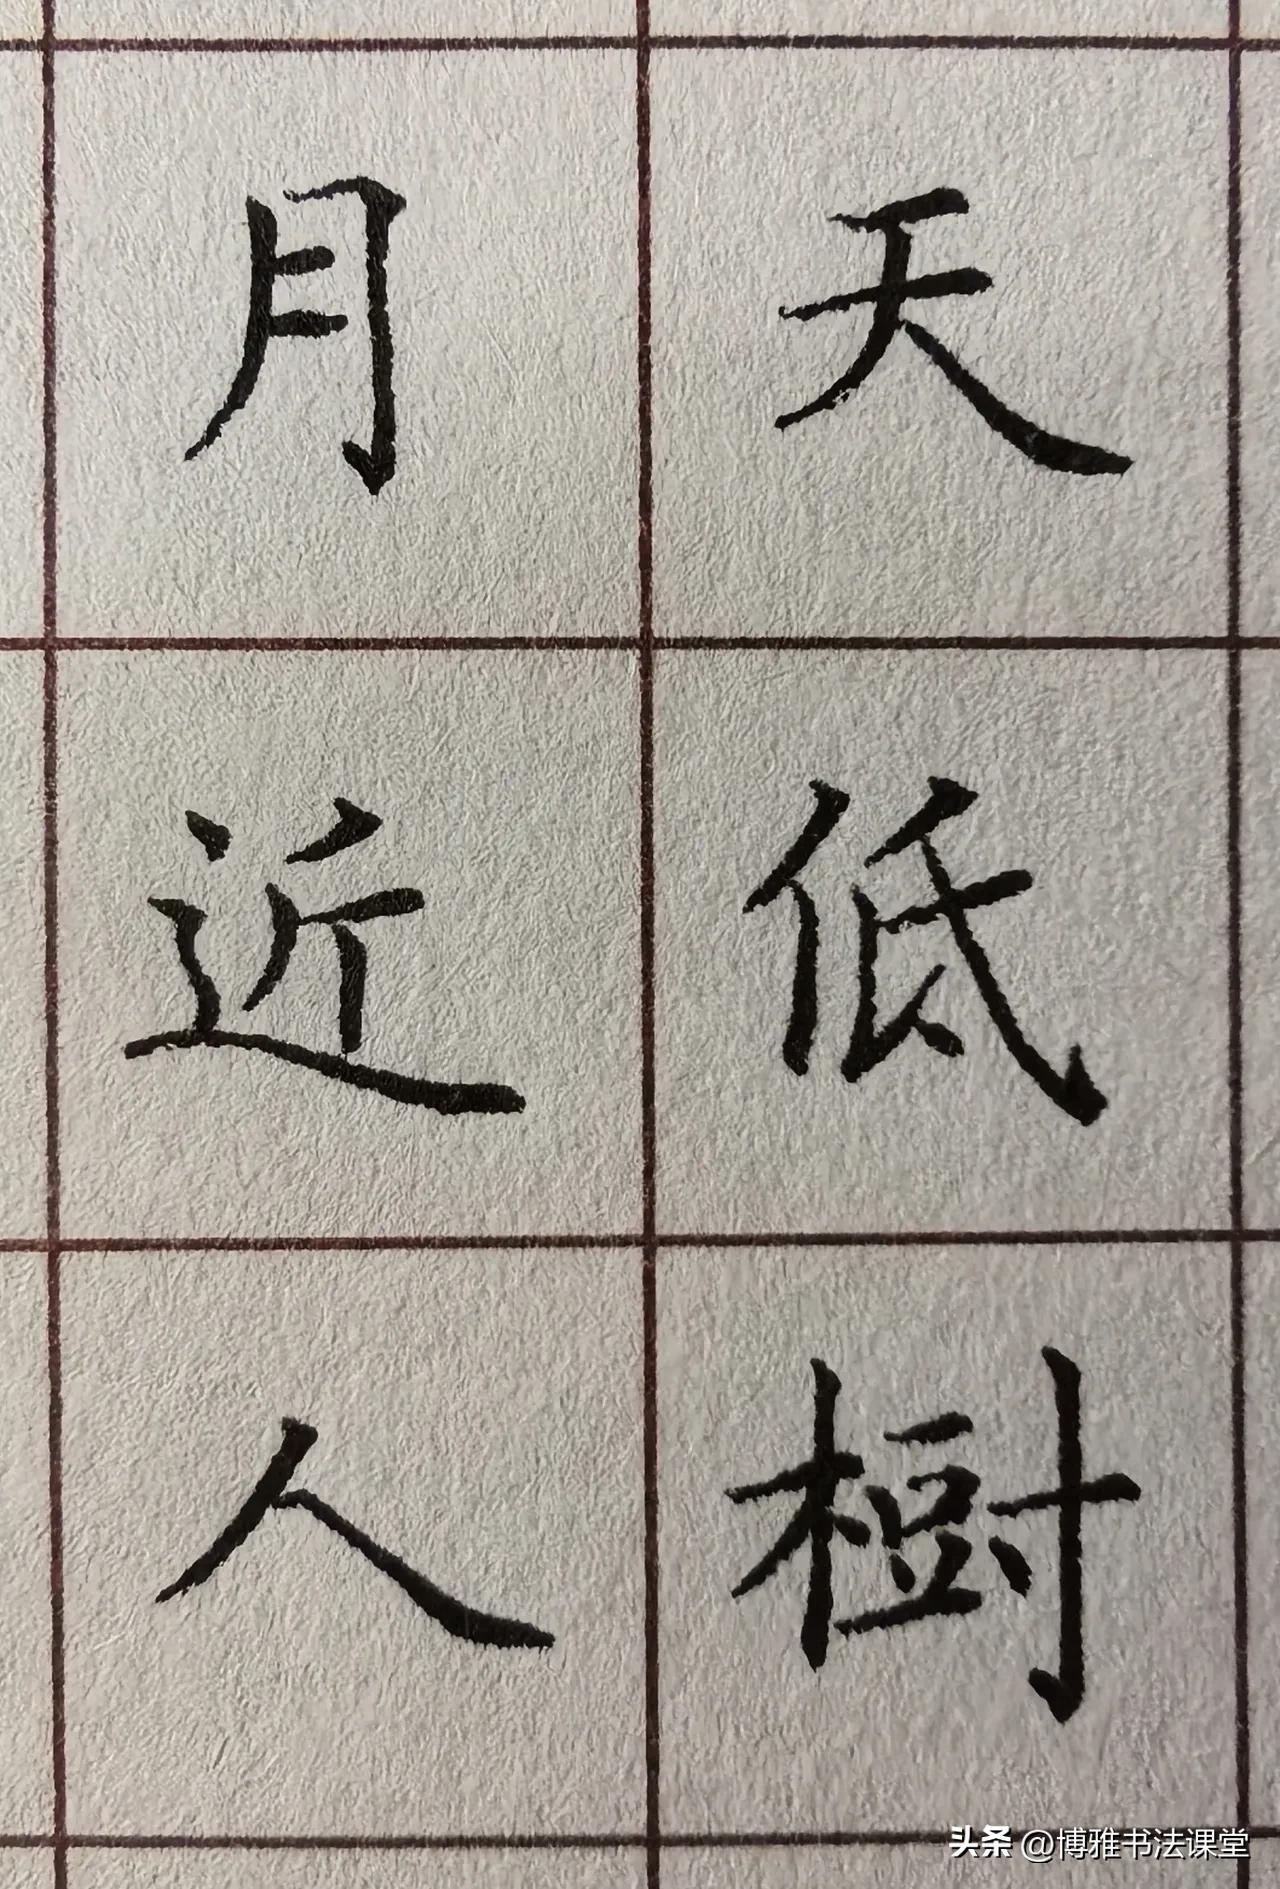 天低樹
月近人
头条 @博雅书法课堂